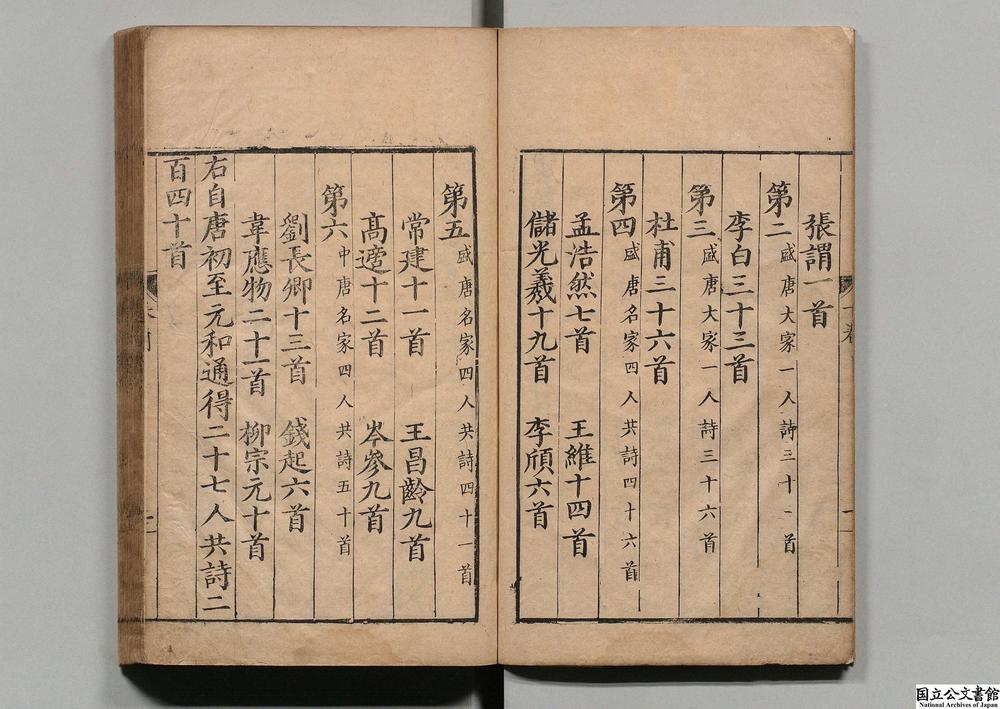 張謂一首
第二盛唐大家一人詩三十二首
李白三十三首
第三盛唐大家一人詩三十六首
杜甫三十六首
第四盛唐名家四人共詩四十六首
孟浩然七首 王維十四首
儲光羲十九首 李頎六首
第五盛唐名家四人共詩四十一首
常建十一首 王昌齡九首
高適十二首 岑參九首
第六中唐名家四人共詩五十首
劉長卿十三首 錢起六首
韋應物二十一首 柳宗元十首
右自唐初至元和通得二十七人共詩二
百四十首
国立公文書館
National Archives of Japan